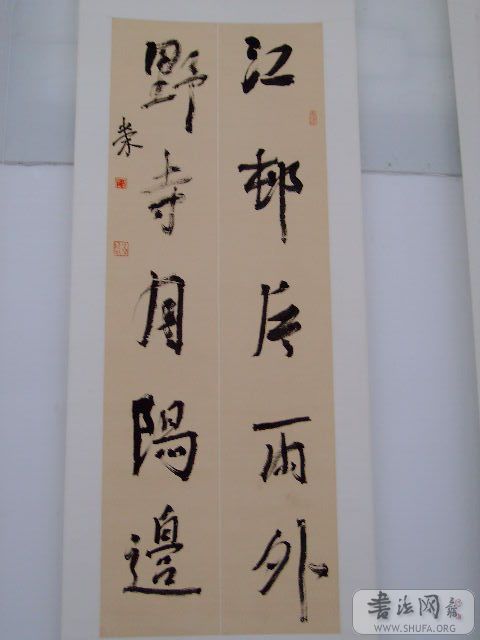 江邨片雨外
野寺月陽邊
荣
書法网
WWW.SHUFA.ORG